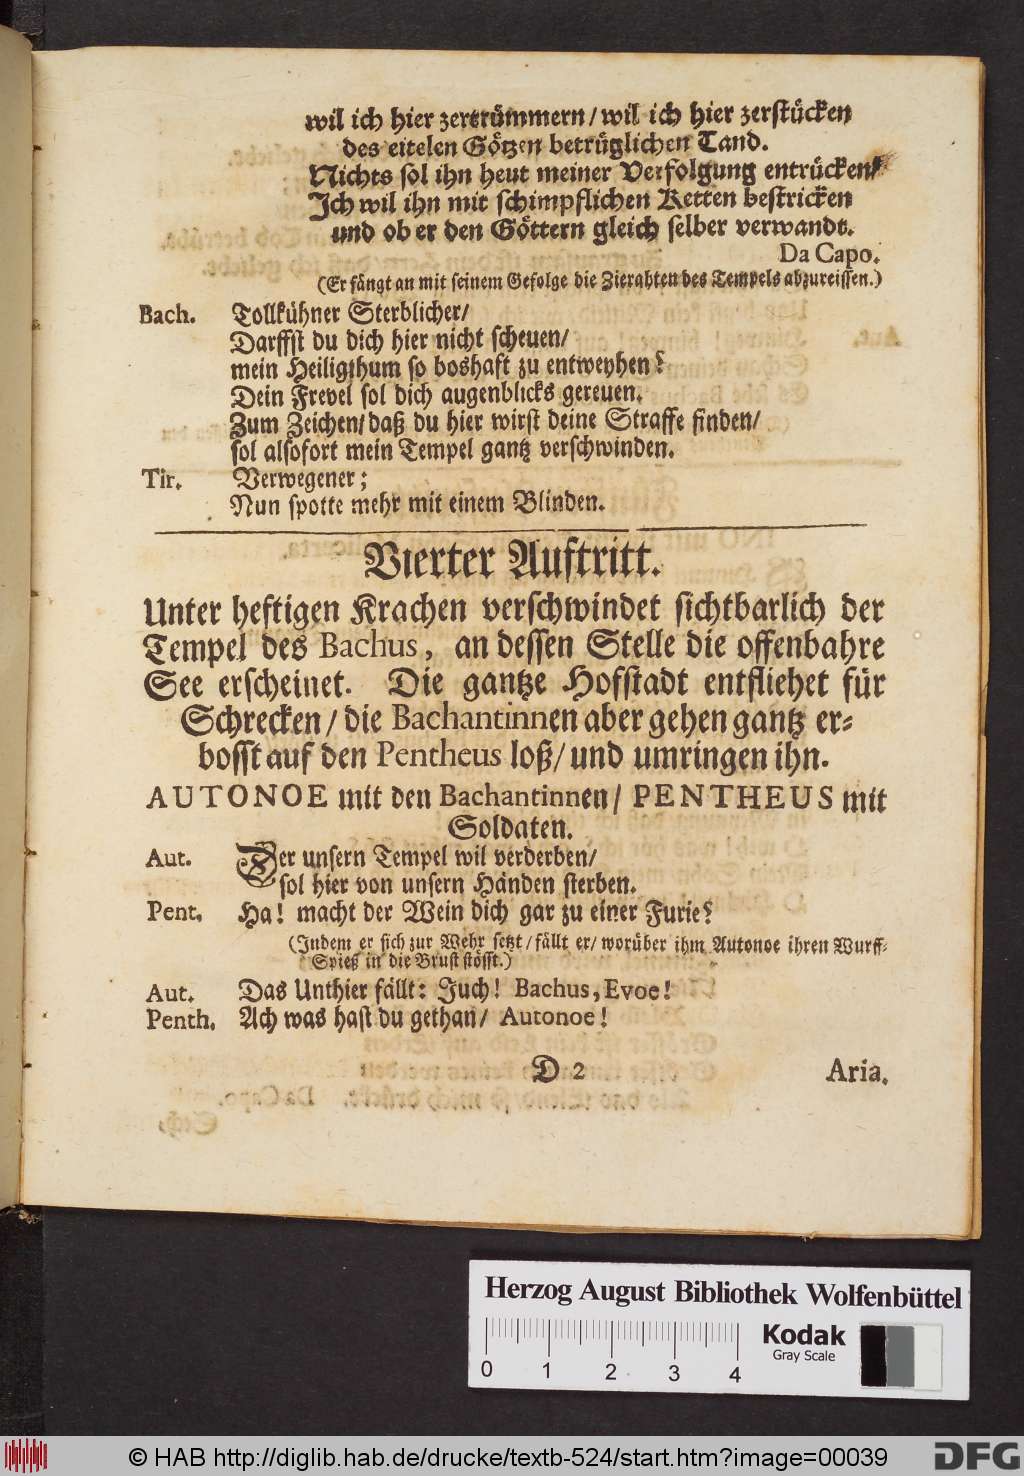 wil ich hier zertrümmern/ wil ich hier zerstücken
des eitelen Götzen betrüglichen Tand.
Nichts sol ihn heut meiner Verfolgung entrücken/
Ich wil ihn mit schimpflichen Ketten bestricken
und ob er den Göttern gleich selber verwandt.
Da Capo.
(Er fängt an mit seinem Gefolge die Zierahten des Tempels abzureissen.)
Bach. Tollkühner Sterblicher/
Darffst du dich hier nicht scheuen/
mein Heiligthum so boshaft zu entweyhen?
Dein Frevel sol dich augenblicks gereuen.
Zum Zeichen/ daß du hier wirst deine Straffe finden/
sol alsofort mein Tempel gantz verschwinden.
Tir. Verwegener;
Nun spotte mehr mit einem Blinden.
Vierter Auftritt.
Unter heftigen Krachen verschwindet sichtbarlich der
Tempel des Bachus, an dessen Stelle die offenbahre
See erscheinet. Die gantze Hofstadt entfliehet für
Schrecken/ die Bachantinnen aber gehen gantz er-
bosst auf den Pentheus loß/ und umringen ihn.
AUTONOE mit den Bachantinnen/ PENTHEUS mit
Soldaten.
Aut. Der unsern Tempel wil verderben/
sol hier von unsern Händen sterben.
Pent. Ha! macht der Wein dich gar zu einer Furie?
(Indem er sich zur Wehr setzt/ fällt er/ worüber ihm Autonoe ihren Wurff-
Spieß in die Brust stösst.)
Aut. Das Unthier fällt: Juch! Bachus, Evoe!
Penth. Ach was hast du gethan/ Autonoe!
D 2 Aria.
Herzog August Bibliothek Wolfenbüttel
0 1 2 3 4
Kodak
Gray Scale
© HAB http://diglib.hab.de/drucke/textb-524/start.htm?image=00039
DFG